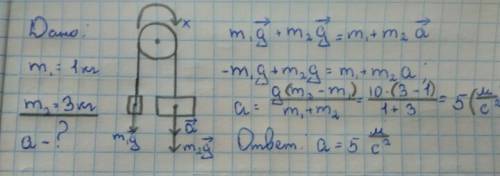 Дано:
m₁ = 1 кг
m₂ = 3 кг
a - ?
x
m₁g⃗
a⃗
m₂g⃗
m₁g⃗ + m₂g⃗ = m₁ + m₂ a⃗
-m₁g + m₂g = m₁ + m₂ a
a = g(m₂ - m₁) / m₁ + m₂ = 10 · (3 - 1) / 1 + 3 = 5 (м/с²
Ответ: a = 5 м/с²